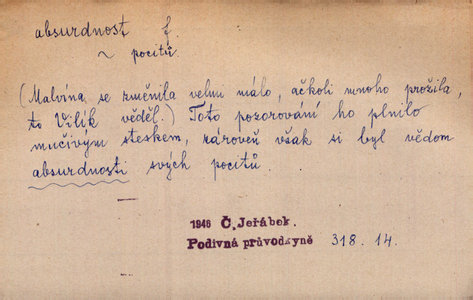 absurdnost f.
~ pocitů
(Malvína se změnila velmi málo, ačkoli mnoho prožila,
to Vilík věděl.) Toto pozorování ho plnilo
mučivým steskem, zároveň však si byl vědom
absurdnosti svých pocitů.
1946 Č. Jeřábek.
Podivná průvodkyně 318.14.